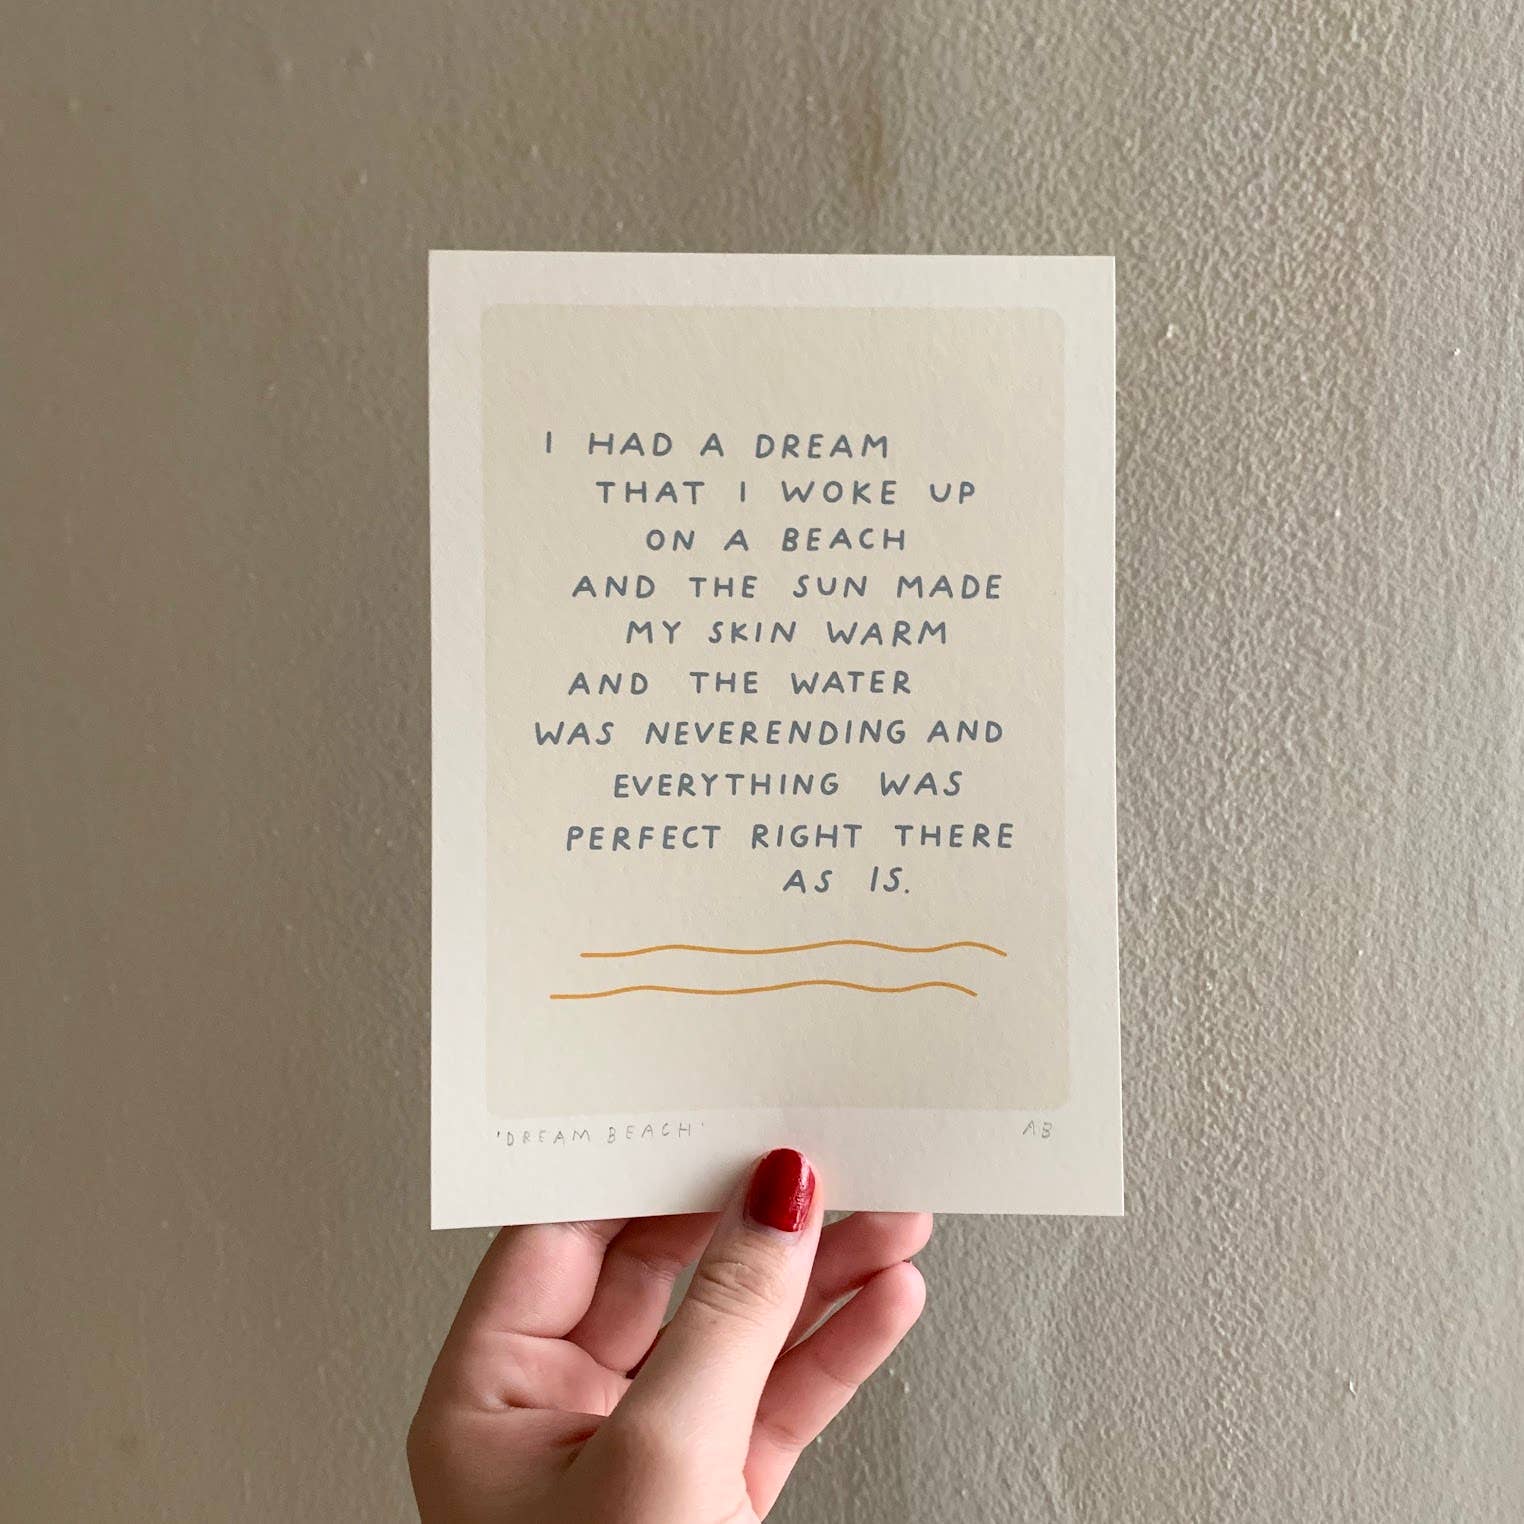 I HAD A DREAM
THAT I WOKE UP
ON A BEACH
AND THE SUN MADE
MY SKIN WARM
AND THE WATER
WAS NEVERENDING AND
EVERYTHING WAS
PERFECT RIGHT THERE
AS IS.
'DREAM BEACH' AB